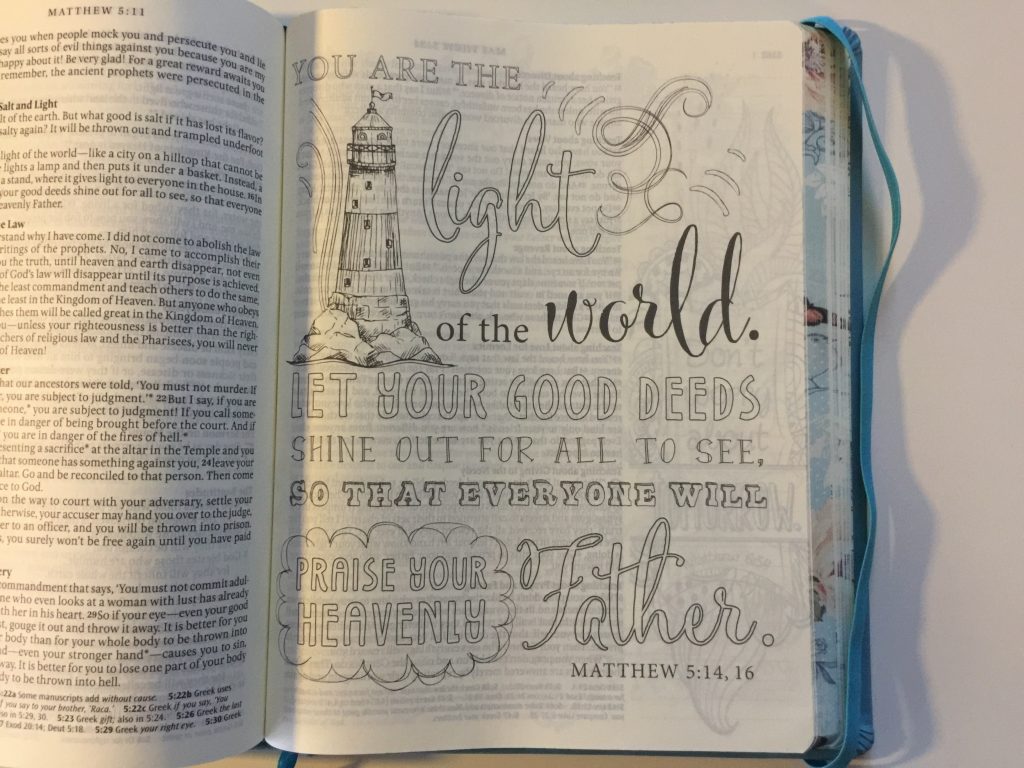 MATTHEW 5:11
es you when people mock you and persecute you and lie
say all sorts of evil things against you because you are my
happy about it! Be very glad! For a great reward awaits you
remember, the ancient prophets were persecuted in the
Salt and Light
lt of the earth. But what good is salt if it has lost its flavor?
salty again? It will be thrown out and trampled underfoot
light of the world—like a city on a hilltop that cannot be
lights a lamp and then puts it under a basket. Instead, a
a stand, where it gives light to everyone in the house. 16In
your good deeds shine out for all to see, so that everyone
eavenly Father.
e Law
rstand why I have come. I did not come to abolish the law
ritings of the prophets. No, I came to accomplish their
u the truth, until heaven and earth disappear, not even
of God's law will disappear until its purpose is achieved.
the least commandment and teach others to do the same,
e least in the Kingdom of Heaven. But anyone who obeys
hes them will be called great in the Kingdom of Heaven.
ou—unless your righteousness is better than the righ-
chers of religious law and the Pharisees, you will never
of Heaven!
er
hat our ancestors were told, 'You must not murder. If
, you are subject to judgment.'* 22But I say, if you are
meone,* you are subject to judgment! If you call some-
e in danger of being brought before the court. And if
you are in danger of the fires of hell.*
esenting a sacrifice* at the altar in the Temple and you
that someone has something against you, 24leave your
altar. Go and be reconciled to that person. Then come
ce to God.
on the way to court with your adversary, settle your
therwise, your accuser may hand you over to the judge,
er to an officer, and you will be thrown into prison.
s, you surely won't be free again until you have paid
ery
commandment that says, 'You must not commit adul-
ne who even looks at a woman with lust has already
th her in his heart. 29So if your eye—even your good
st, gouge it out and throw it away. It is better for you
r body than for your whole body to be thrown into
nd—even your stronger hand*—causes you to sin,
way. It is better for you to lose one part of your body
dy to be thrown into hell.
:22a Some manuscripts add without cause. 5:22b Greek uses
if you say to your brother, 'Raca.' 5:22c Greek if you say, 'You
so in 5:29, 30. 5:23 Greek gift; also in 5:24. 5:26 Greek the last
7 Exod 20:14; Deut 5:18. 5:29 Greek your right eye. 5:30 Greek
YOU ARE THE
light
of the world.
LET YOUR GOOD DEEDS
SHINE OUT FOR ALL TO SEE,
SO THAT EVERYONE WILL
PRAISE YOUR
HEAVENLY
Father.
MATTHEW 5:14, 16